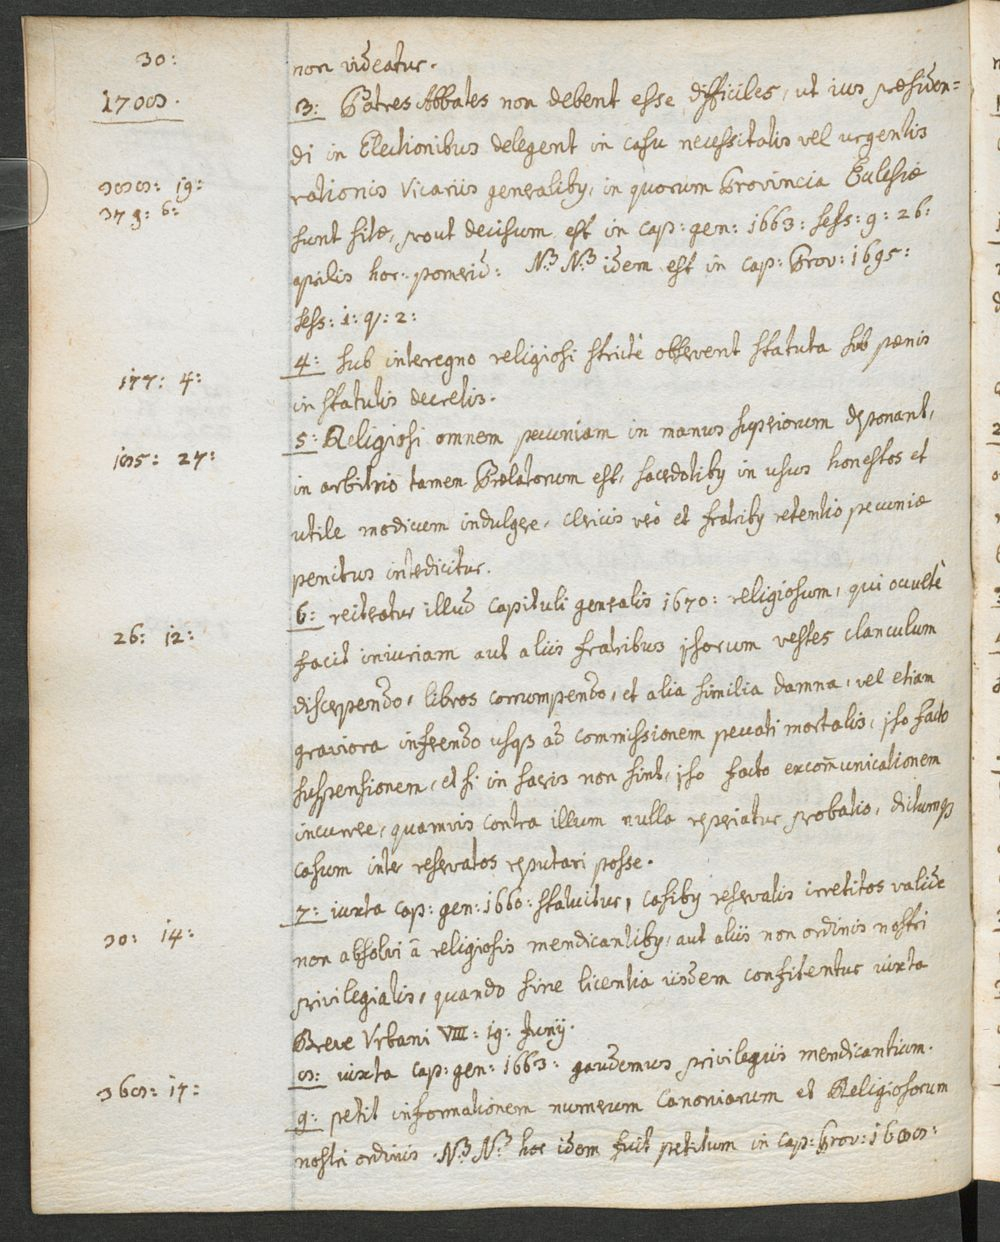 30:
non videatur.
1708.
3: Patres Abbates non debent esse difficiles, ut ius præsiden=
di in Electionibus delegent in casu necessitatis vel urgentis
388: 19:
rationis Vicariis generalib9, in quorum Provincia Ecclesiæ
379: 6:
sunt sitæ, prout decisum est in cap: gen: 1663: sess: 9: 26:
aprilis hor: pomerid: NB NB idem est in cap: Prov: 1695:
sess: 1: q: 2:
4: sub interegno religiosi stricte observent statuta sub pœnis
177: 4:
in statutis decretis.
5: Religiosi omnem pecuniam in manus superiorum deponant,
185: 27:
in arbitrio tamen Prælatorum est, sacerdotib9 in usus honestos et
utile modicum indulgere, clericis vero et fratrib9 retentio pecuniæ
penitus interdicitur.
6: reiteratur illud capituli generalis 1670: religiosum, qui occulte
26: 12:
facit iniuriam aut aliis fratribus ipsorum vestes clanculum
discerpendo, libros corrumpendo, et alia similia damna, vel etiam
graviora inferendo usq3 ad commissionem peccati mortalis, ipso facto
suspensionem, et si in sacris non sint, ipso facto excom̅unicationem
incurrere, quamvis contra illum nulla reperiatur probatio, dictumq3
casum inter reservatos reputari posse.
7: iuxta cap: gen: 1660: statuitur, casib9 reservatis irretitos valide
30: 14:
non absolvi ā religiosis mendicantib9, aut aliis non ordinis nostri
privilegiatis, quando sine licentia iisdem confitentur iuxta
Breve Urbani VIII: 19: Junij.
8: iuxta cap: gen: 1663: gaudemus privilegiis mendicantium.
368: 17:
9: petit informationem numerum Canoniarum et Religiosorum
nostri ordinis. NB NB hoc idem fuit petitum in cap: Prov: 1688: